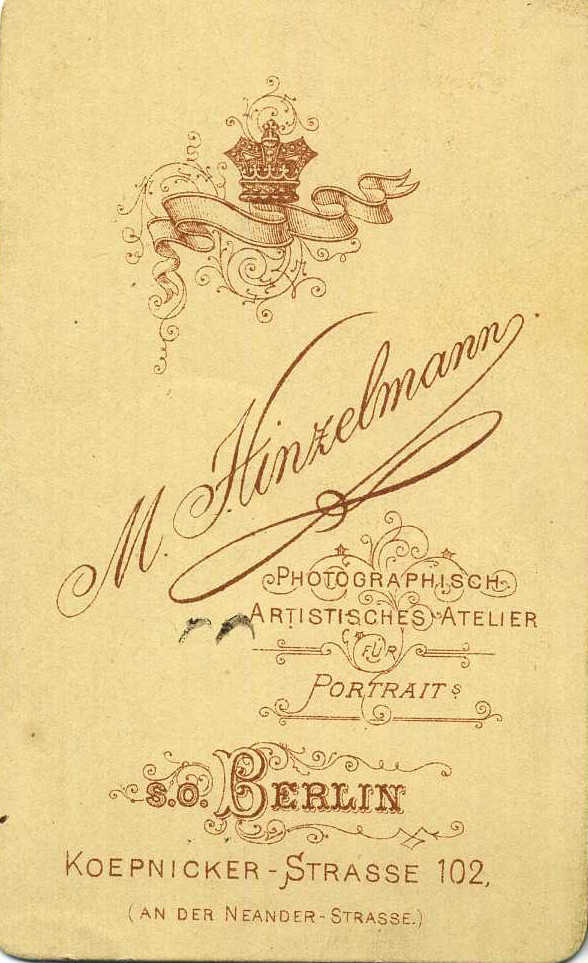 M. Hinzelmann.
PHOTOGRAPHISCH-
ARTISTISCHES ATELIER
FÜR
PORTRAITS
S.O. BERLIN
KOEPNICKER-STRASSE 102,
(AN DER NEANDER-STRASSE.)